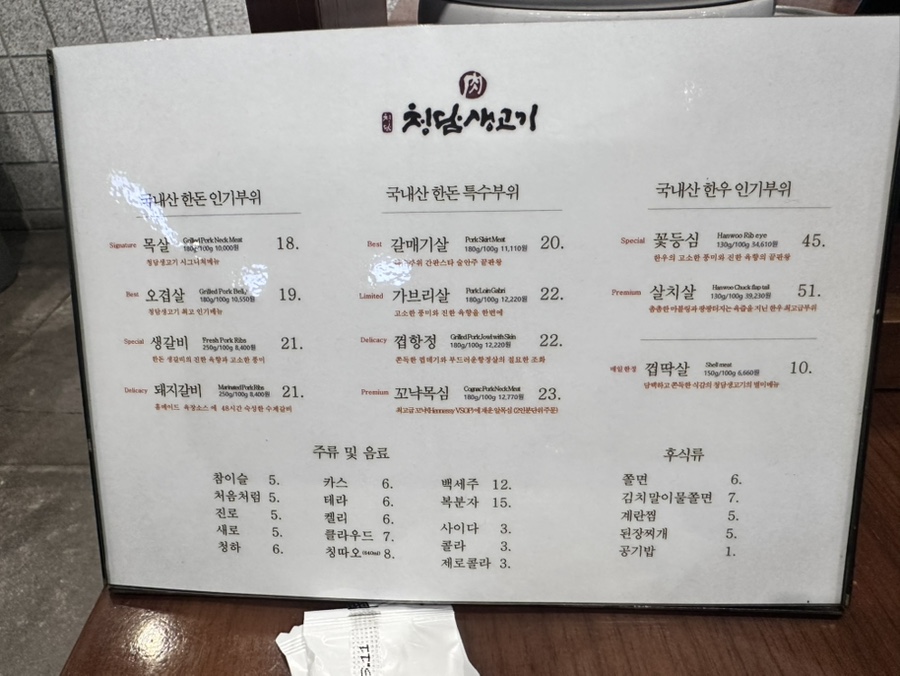 肉
청담생고기
국내산 한돈 인기부위
Signature 목살 Grilled Pork Neck Meat 180g/100g 10,000원 18.
청담생고기 시그니처메뉴
Best 오겹살 Grilled Pork Belly 180g/100g 10,550원 19.
청담생고기 최고 인기메뉴
Special 생갈비 Fresh Pork Ribs 250g/100g 8,400원 21.
한돈 생갈비의 진한 육향과 고소한 풍미
Delicacy 돼지갈비 Marinated Pork Ribs 250g/100g 8,400원 21.
홈메이드 육장소스에 48시간 숙성한 수제갈비
국내산 한돈 특수부위
Best 갈매기살 Pork Skirt Meat 180g/100g 11,110원 20.
간판스타 술안주 끝판왕
Limited 가브리살 Pork Loin Gabri 180g/100g 12,220원 22.
고소한 풍미와 진한 육향을 한번에
Delicacy 껍항정 Grilled Pork Jowl with Skin 180g/100g 12,220원 22.
쫀득한 껍데기와 부드러운항정살의 절묘한 조화
Premium 꼬냑목심 Cognac Pork Neck Meat 180g/100g 12,770원 23.
최고급 꼬냑(Hennessy VSOP)에 재운 알목심 (2인분단위주문)
국내산 한우 인기부위
Special 꽃등심 Hanwoo Rib eye 130g/100g 34,610원 45.
한우의 고소한 풍미와 진한 육향의 끝판왕
Premium 살치살 Hanwoo Chuck flap tail 130g/100g 39,230원 51.
촘촘한 마블링과 팡팡터지는 육즙을 지닌 한우 최고급부위
매일한정 껍딱살 Shell meat 150g/100g 6,660원 10.
담백하고 쫀득한 식감의 청담생고기의 별미메뉴
주류 및 음료
참이슬 5.
처음처럼 5.
진로 5.
새로 5.
청하 6.
카스 6.
테라 6.
켈리 6.
클라우드 7.
칭따오(640ml) 8.
백세주 12.
복분자 15.
사이다 3.
콜라 3.
제로콜라 3.
후식류
쫄면 6.
김치말이물쫄면 7.
계란찜 5.
된장찌개 5.
공기밥 1.